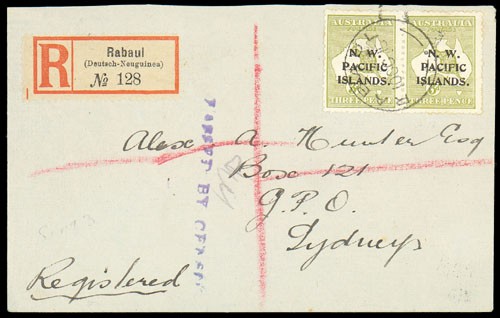 R
Rabaul
(Deutsch-Neuguinea)
№ 128
AUSTRALIA
N. W.
PACIFIC
ISLANDS.
THREE PENCE
AUSTRALIA
N. W.
PACIFIC
ISLANDS.
THREE PENCE
RABAUL
PASSED BY CENSOR
Alex A Hunter Esq
Box 121
G.P.O.
Sydney
Registered